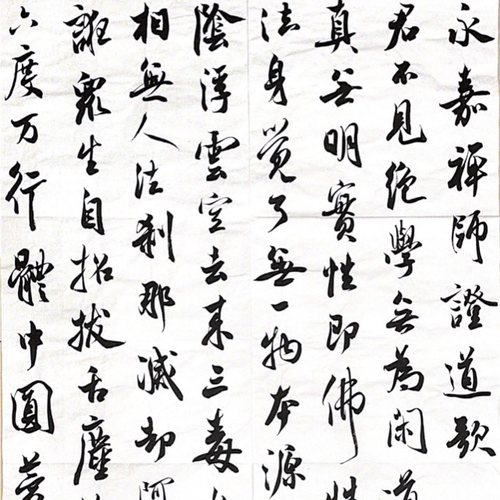 永嘉禅師證道歌
君不見絶學無為閑道
真無明實性即佛性
法身覺了無一物本源
陰浮雲空去来三毒水
相無人法刹那滅却阿
誑衆生自招拔舌塵
六度万行體中圓夢